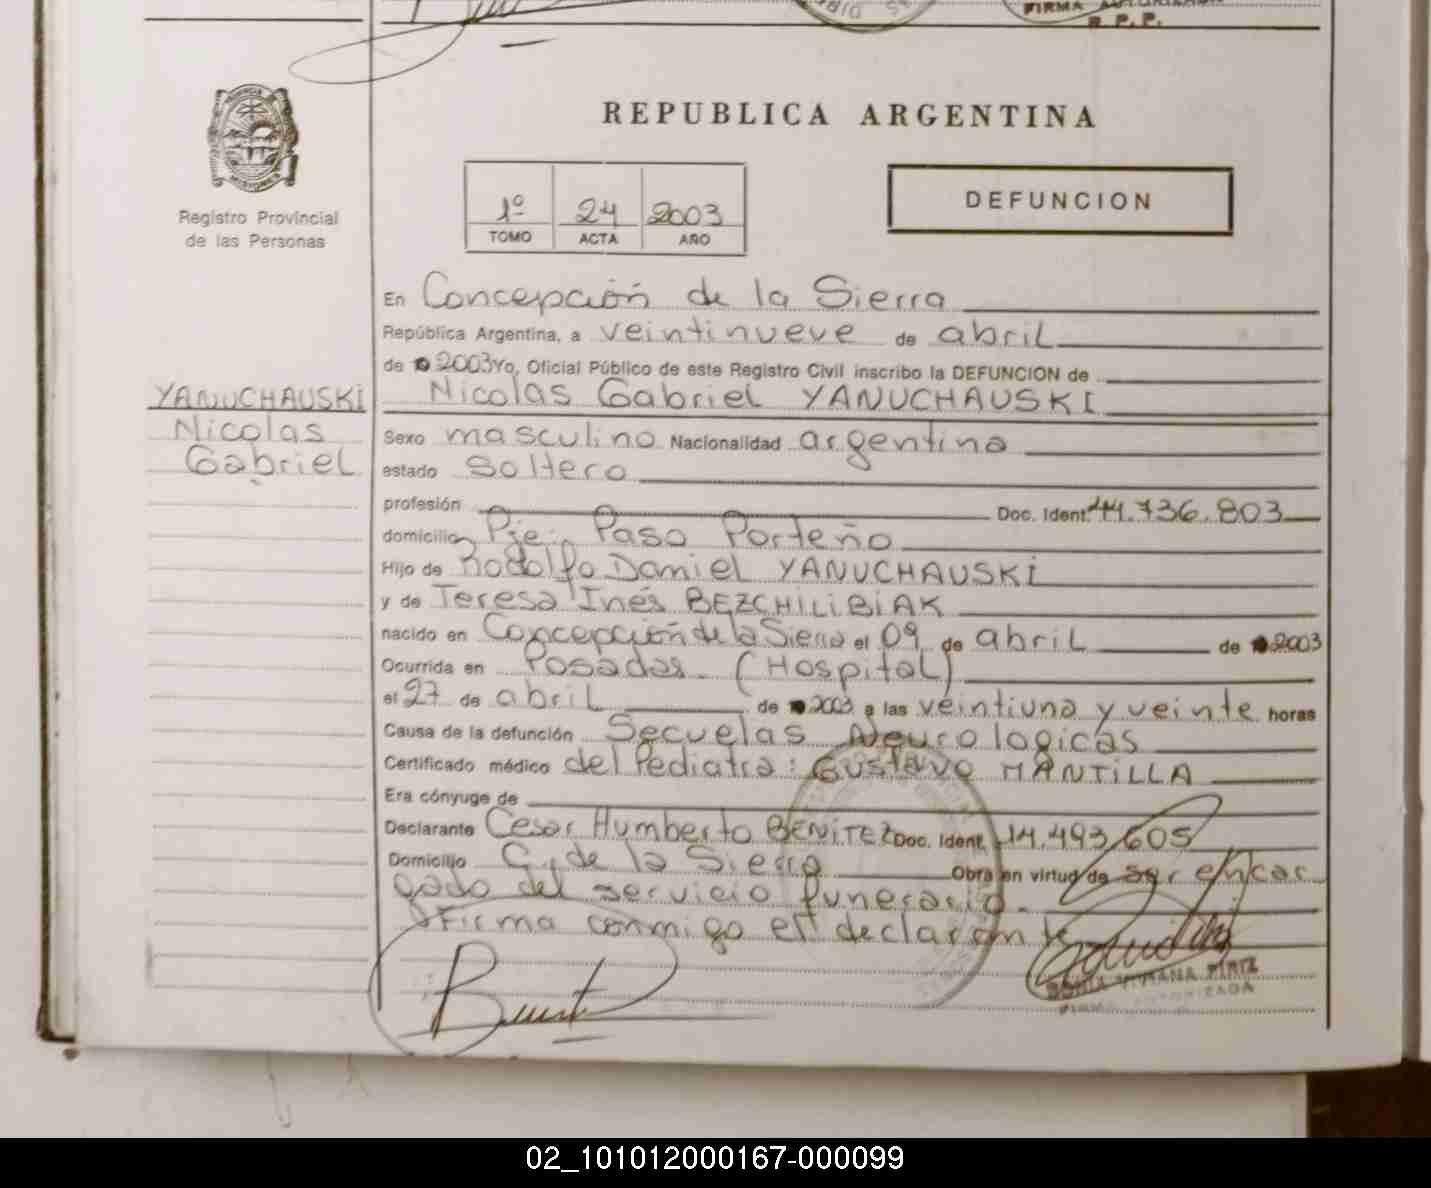 FIRMA AUTORIZADA
R. P. P.
REPUBLICA ARGENTINA
PROVINCIA
MISIONES
Registro Provincial
de las Personas
1º 24 2003
TOMO ACTA AÑO
DEFUNCION
En Concepción de la Sierra
República Argentina, a veintinueve de abril
de 2003 Yo, Oficial Público de este Registro Civil inscribo la DEFUNCION de
YANUCHAUSKI
Nicolas
Gabriel
Nicolas Gabriel YANUCHAUSKI
Sexo masculino Nacionalidad argentina
estado Soltero
profesión Doc. Ident. 44.736.803
domicilio Pje: Paso Porteño
Hijo de Rodolfo Daniel YANUCHAUSKI
y de Teresa Inés BEZCHILIBIAK
nacido en Concepción de la Sierra el 09 de abril de 2003
Ocurrida en Posadas - (Hospital)
el 27 de abril de 2003 a las veintiuna y veinte horas
Causa de la defunción Secuelas Neurologicas
Certificado médico del Pediatra: GUSTAVO MANTILLA
Era cónyuge de
Declarante Cesar Humberto BENITEZ Doc. Ident. 14.493.605
Domicilio C. de la Sierra Obra en virtud de ser encar
gado del servicio funerario.
Firma conmigo el declarante
SONIA VIVIANA PIRIZ
FIRMA AUTORIZADA
02_101012000167-000099